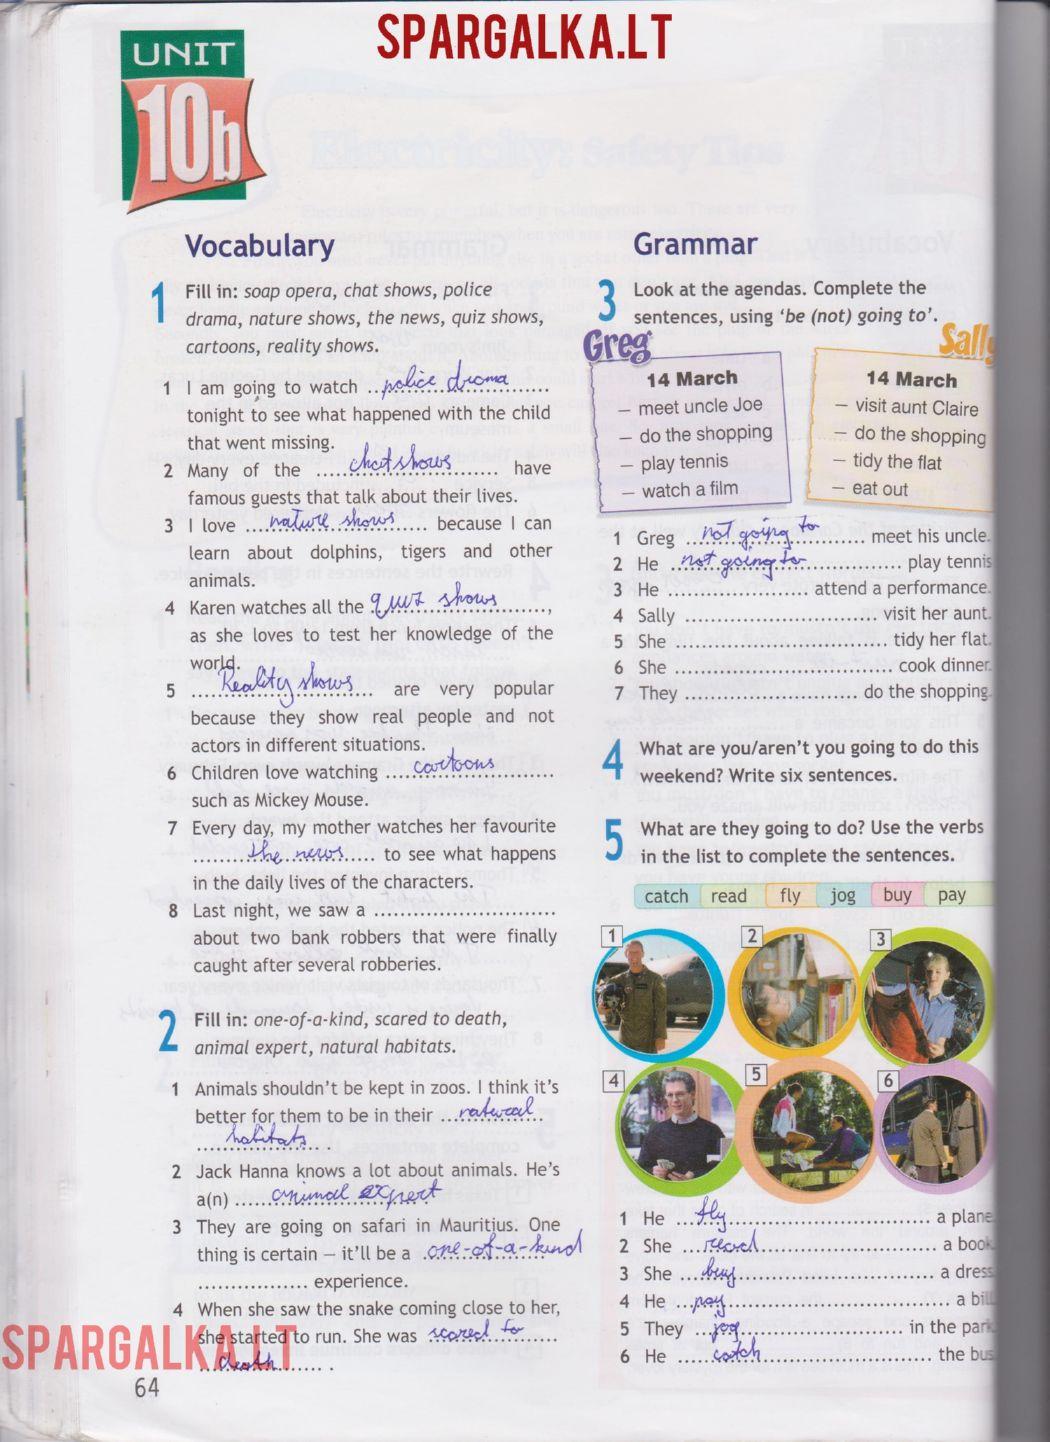 SPARGALKA.LT
UNIT
10b
Vocabulary
1 Fill in: soap opera, chat shows, police
drama, nature shows, the news, quiz shows,
cartoons, reality shows.
1 I am going to watch police drama
tonight to see what happened with the child
that went missing.
2 Many of the chat shows have
famous guests that talk about their lives.
3 I love nature shows because I can
learn about dolphins, tigers and other
animals.
4 Karen watches all the quiz shows,
as she loves to test her knowledge of the
world.
5 Reality shows are very popular
because they show real people and not
actors in different situations.
6 Children love watching cartoons
such as Mickey Mouse.
7 Every day, my mother watches her favourite
the news to see what happens
in the daily lives of the characters.
8 Last night, we saw a ............................
about two bank robbers that were finally
caught after several robberies.
2 Fill in: one-of-a-kind, scared to death,
animal expert, natural habitats.
1 Animals shouldn't be kept in zoos. I think it's
better for them to be in their natural
habitats.
2 Jack Hanna knows a lot about animals. He's
a(n) animal expert
3 They are going on safari in Mauritius. One
thing is certain – it'll be a one-of-a-kind
................. experience.
4 When she saw the snake coming close to her,
she started to run. She was scared to
death.
SPARGALKA.LT
64
Grammar
3 Look at the agendas. Complete the
sentences, using 'be (not) going to'.
Greg
14 March
– meet uncle Joe
– do the shopping
– play tennis
– watch a film
Sally
14 March
– visit aunt Claire
– do the shopping
– tidy the flat
– eat out
1 Greg not going to meet his uncle.
2 He not going to play tennis
3 He ...................... attend a performance.
4 Sally .............................. visit her aunt.
5 She ................................. tidy her flat.
6 She .................................. cook dinner.
7 They ........................... do the shopping.
4 What are you/aren't you going to do this
weekend? Write six sentences.
5 What are they going to do? Use the verbs
in the list to complete the sentences.
catch read fly jog buy pay
1
2
3
4
5
6
1 He fly a plane
2 She read a book
3 She buy a dress
4 He pay a bill
5 They jog in the park
6 He catch the bus